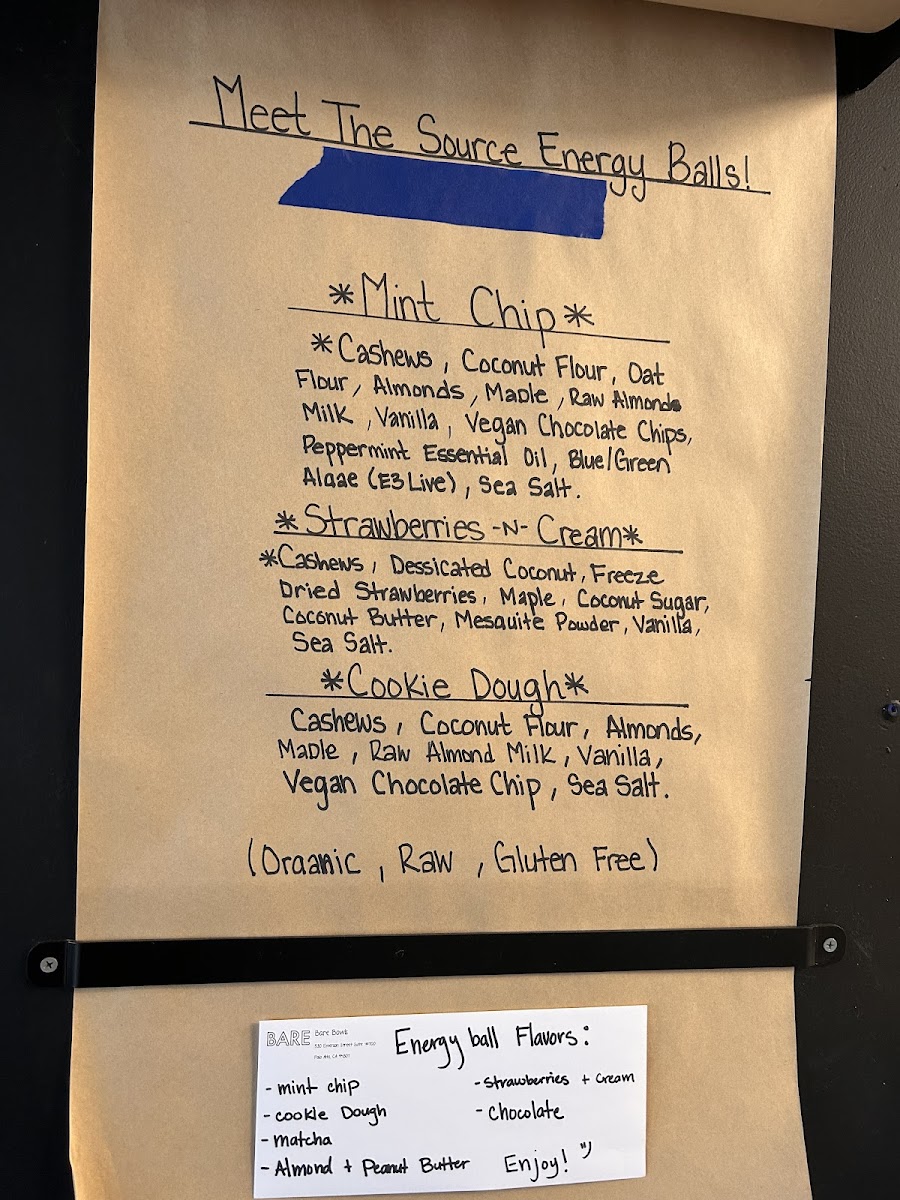 Meet The Source Energy Balls!
*Mint Chip*
*Cashews, Coconut Flour, Oat
Flour, Almonds, Maple, Raw Almond
Milk, Vanilla, Vegan Chocolate Chips,
Peppermint Essential Oil, Blue/Green
Algae (E3Live), Sea Salt.
*Strawberries -N- Cream*
*Cashews, Dessicated Coconut, Freeze
Dried Strawberries, Maple, Coconut Sugar,
Coconut Butter, Mesquite Powder, Vanilla,
Sea Salt.
*Cookie Dough*
Cashews, Coconut Flour, Almonds,
Maple, Raw Almond Milk, Vanilla,
Vegan Chocolate Chip, Sea Salt.
(Organic, Raw, Gluten Free)
BARE Bare Bowls
530 Emerson Street Suite
Palo Alto, CA 94301
Energy ball Flavors:
- mint chip
- cookie Dough
- matcha
- Almond + Peanut Butter
- Strawberries + Cream
- Chocolate
Enjoy!